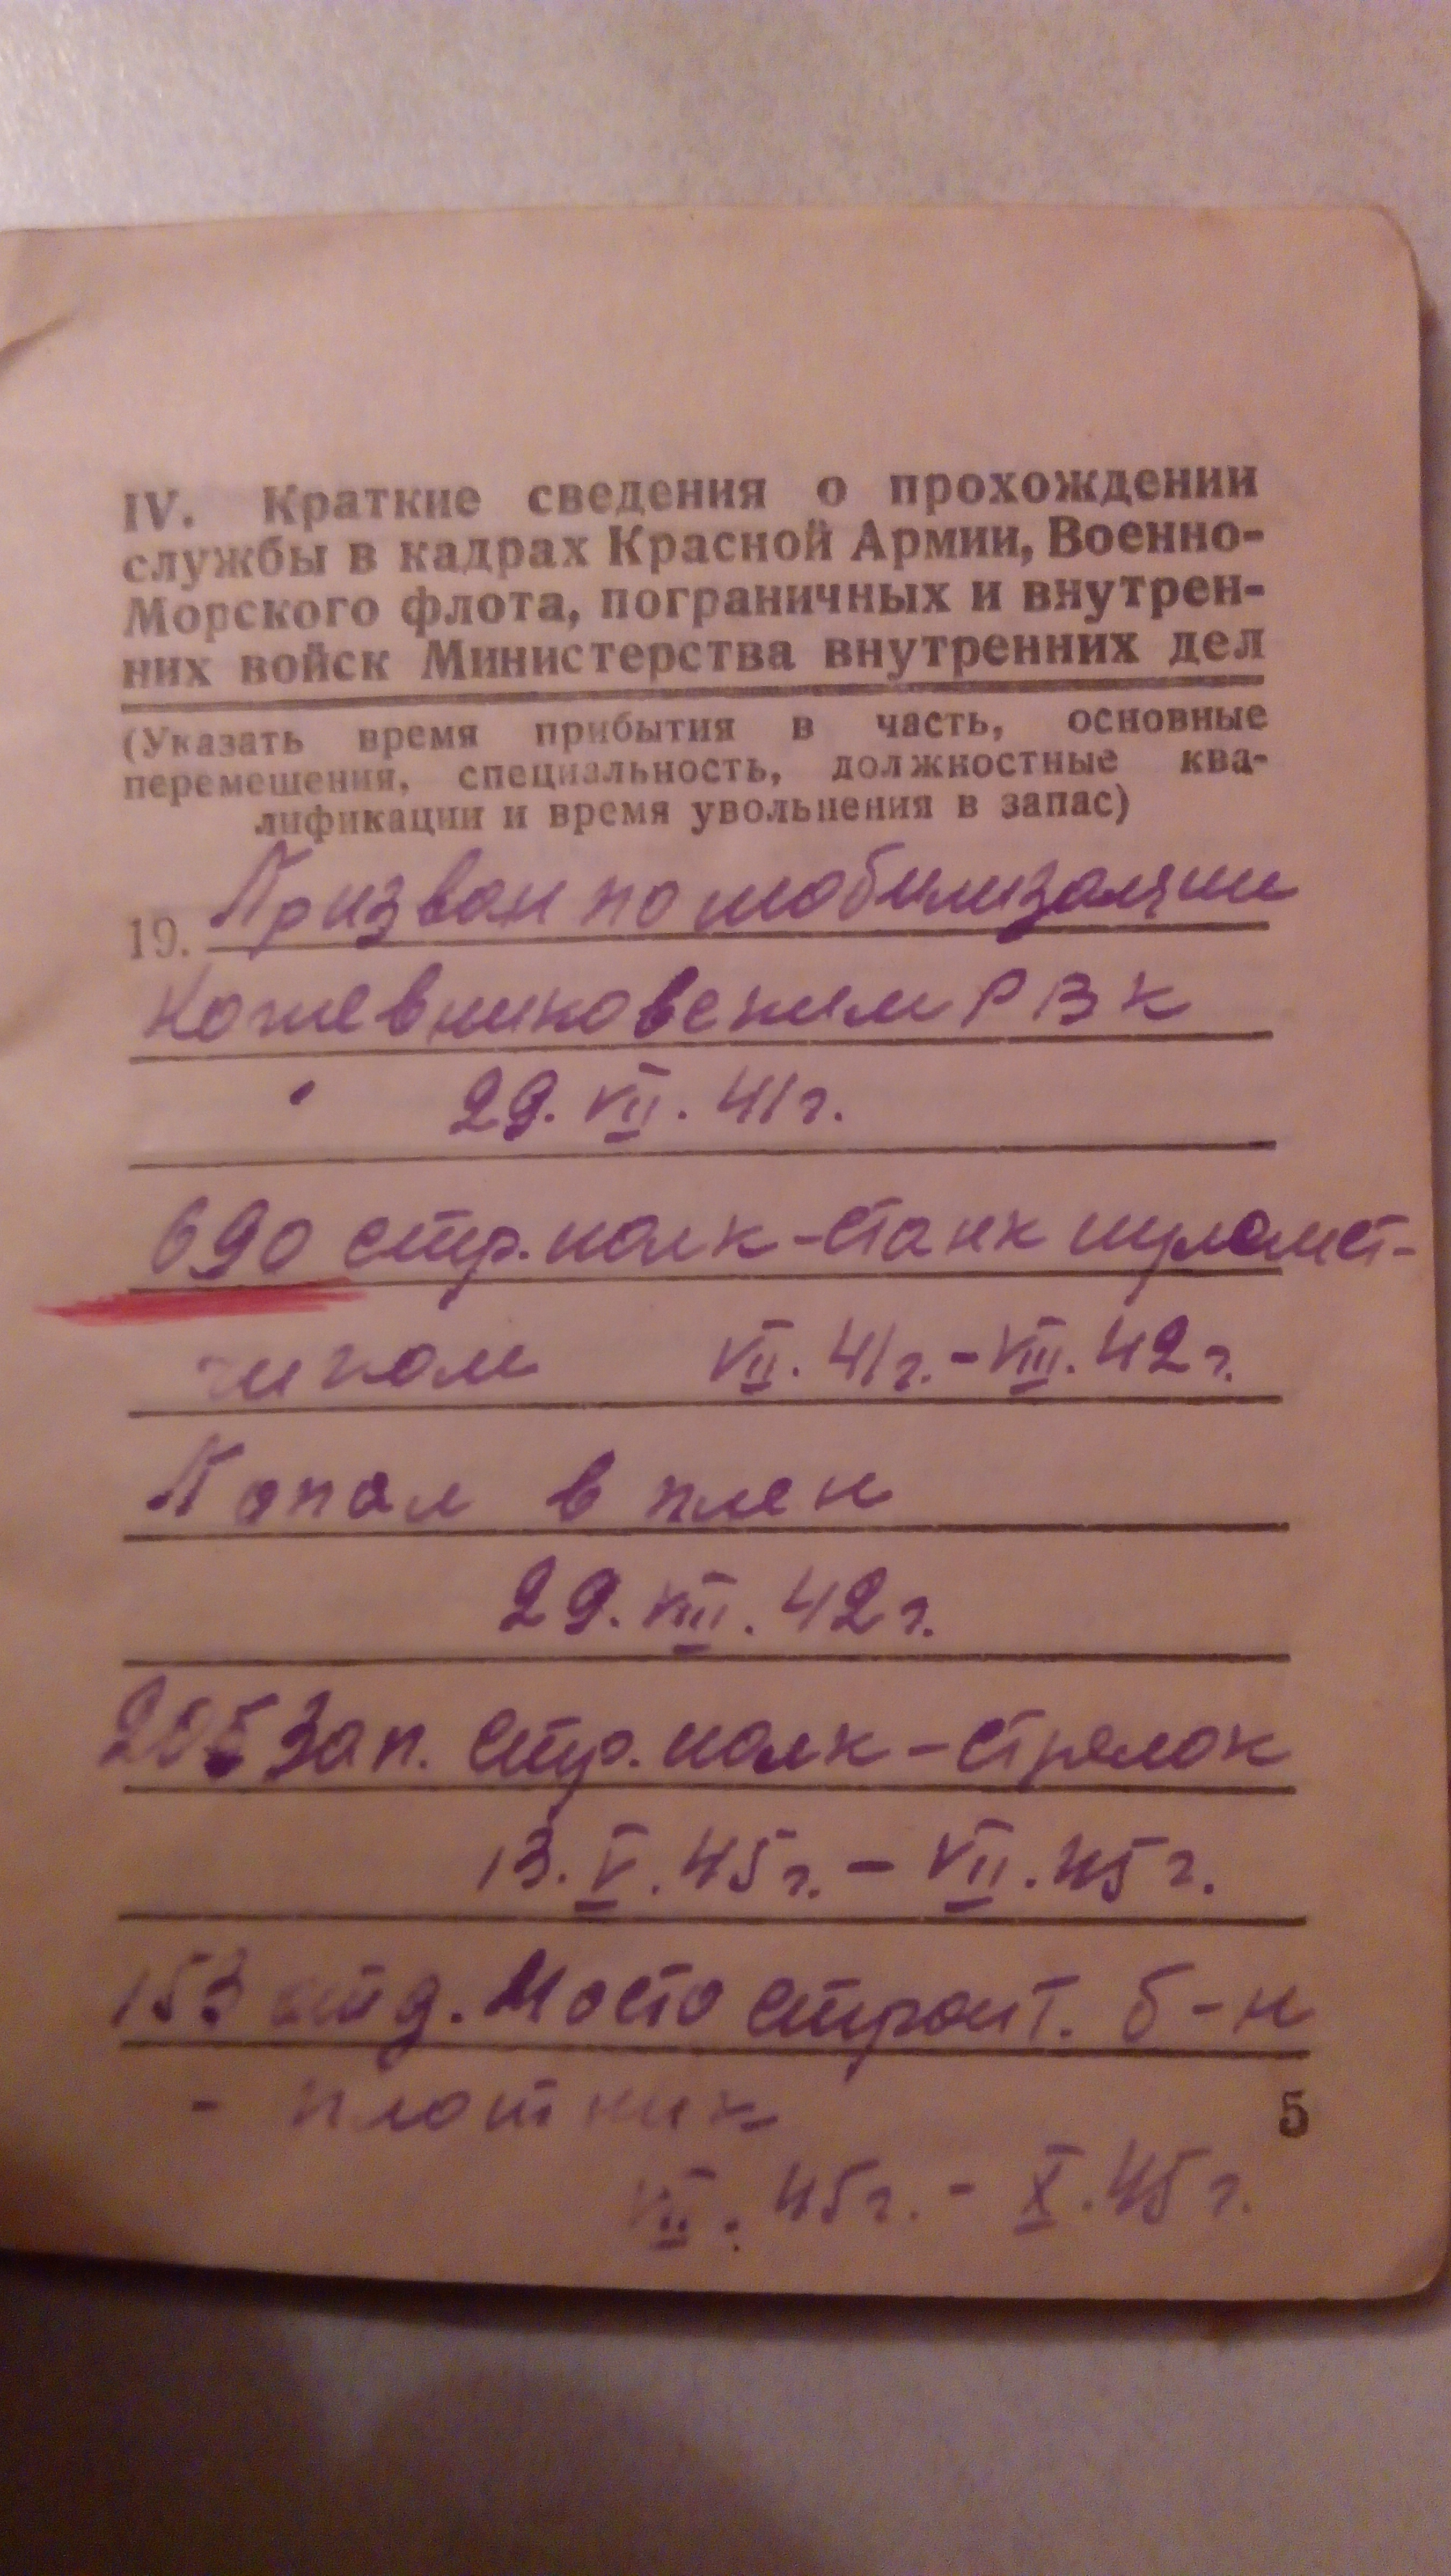 IV. Краткие сведения о прохождении
службы в кадрах Красной Армии, Военно-
Морского флота, пограничных и внутрен-
них войск Министерства внутренних дел
(Указать время прибытия в часть, основные
перемещения, специальность, должностные ква-
лификации и время увольнения в запас)
19. Призван по мобилизации
Кожевниковским РВК
29. VII. 41г.
690 стр. полк - станк пулемет-
чиком VII. 41г. - VIII. 42г.
Попал в плен
29. VIII. 42г.
205 Зап. стр. полк - стрелок
13. V. 45г. - VII. 45г.
153 отд. Мосто строит. б-н
- плотник
5
VII. 45г. - X. 45г.